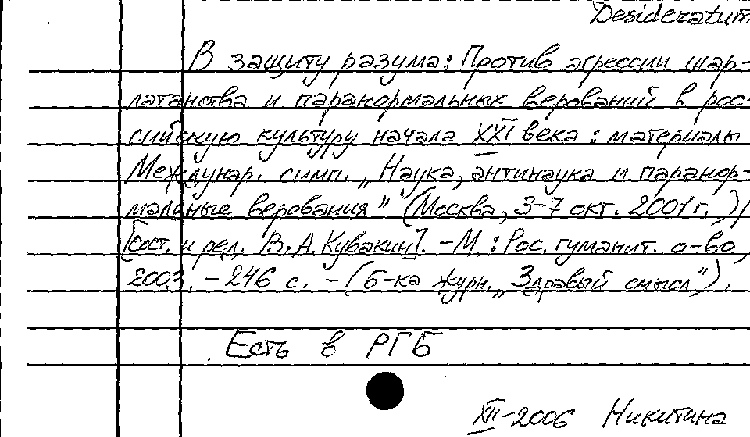 Desideratum
В защиту разума: Против агрессии шар-
латанства и паранормальных верований в рос-
сийскую культуру начала XXI века : материалы
Междунар. симп. „Наука, антинаука и паранор-
мальные верования" (Москва, 3-7 окт. 2001 г.) /
[Сост. и ред. В.А. Кувакин]. - М. : Рос. гуманит. о-во,
2003. - 246 с. - (Б-ка журн. „Здравый смысл").
Есть в РГБ
XII-2006 Никитина